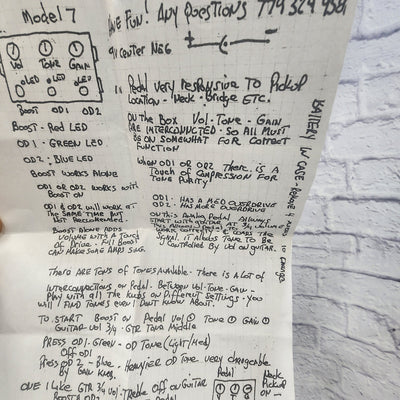 Model 7
Have Fun! Any Questions 774 324 4581
9V center NEG
Vol Tone Gain
LED LED LED
Boost OD1 OD2
Pedal very responsive To Pickup
Location - Neck - Bridge ETC.
On the Box Vol - Tone - Gain
Are Interconnected - So All Must
Be on Somewhat For Correct
Function
When OD1 or OD2 There is A
Touch of Compression For
Tone Purity
OD1 - Has A Med Overdrive
OD2 - Has More Overdrive
On this Analog Pedal Allows
Start with guitar at 3/4 volume
Signal. It Allows Tone To Be
Controlled By Vol on guitar.
Boost - Red LED
OD1 - Green LED
OD2 - Blue LED
Boost Works Alone
OD1 or OD2 works with
Boost On
OD1 & OD2 will work at
The Same Time But
Not Recommended.
Boost Alone Adds
Volume with A Touch
of Drive. Full Boost
Can Make Some Amps Sing.
Battery in case -
There Are Tons of Tones Available - There is A Lot of
Interconnections on Pedal - Between Vol - Tone - Gain -
Play with All The Knobs on Different Settings - you
will Find Tones even I Don't Know About.
To Start Boost on Pedal Vol Tone Gain
Guitar Vol 3/4 - GTR Tone Middle
Press OD1 - Green - OD Tone (Light/Med)
Off OD1
Press OD2 - Blue - Heavier OD Tone very changeable
By Gain Knob.
One I Like GTR 3/4 Vol - Treble Off on Guitar
Pedal
Neck
Pickup
On